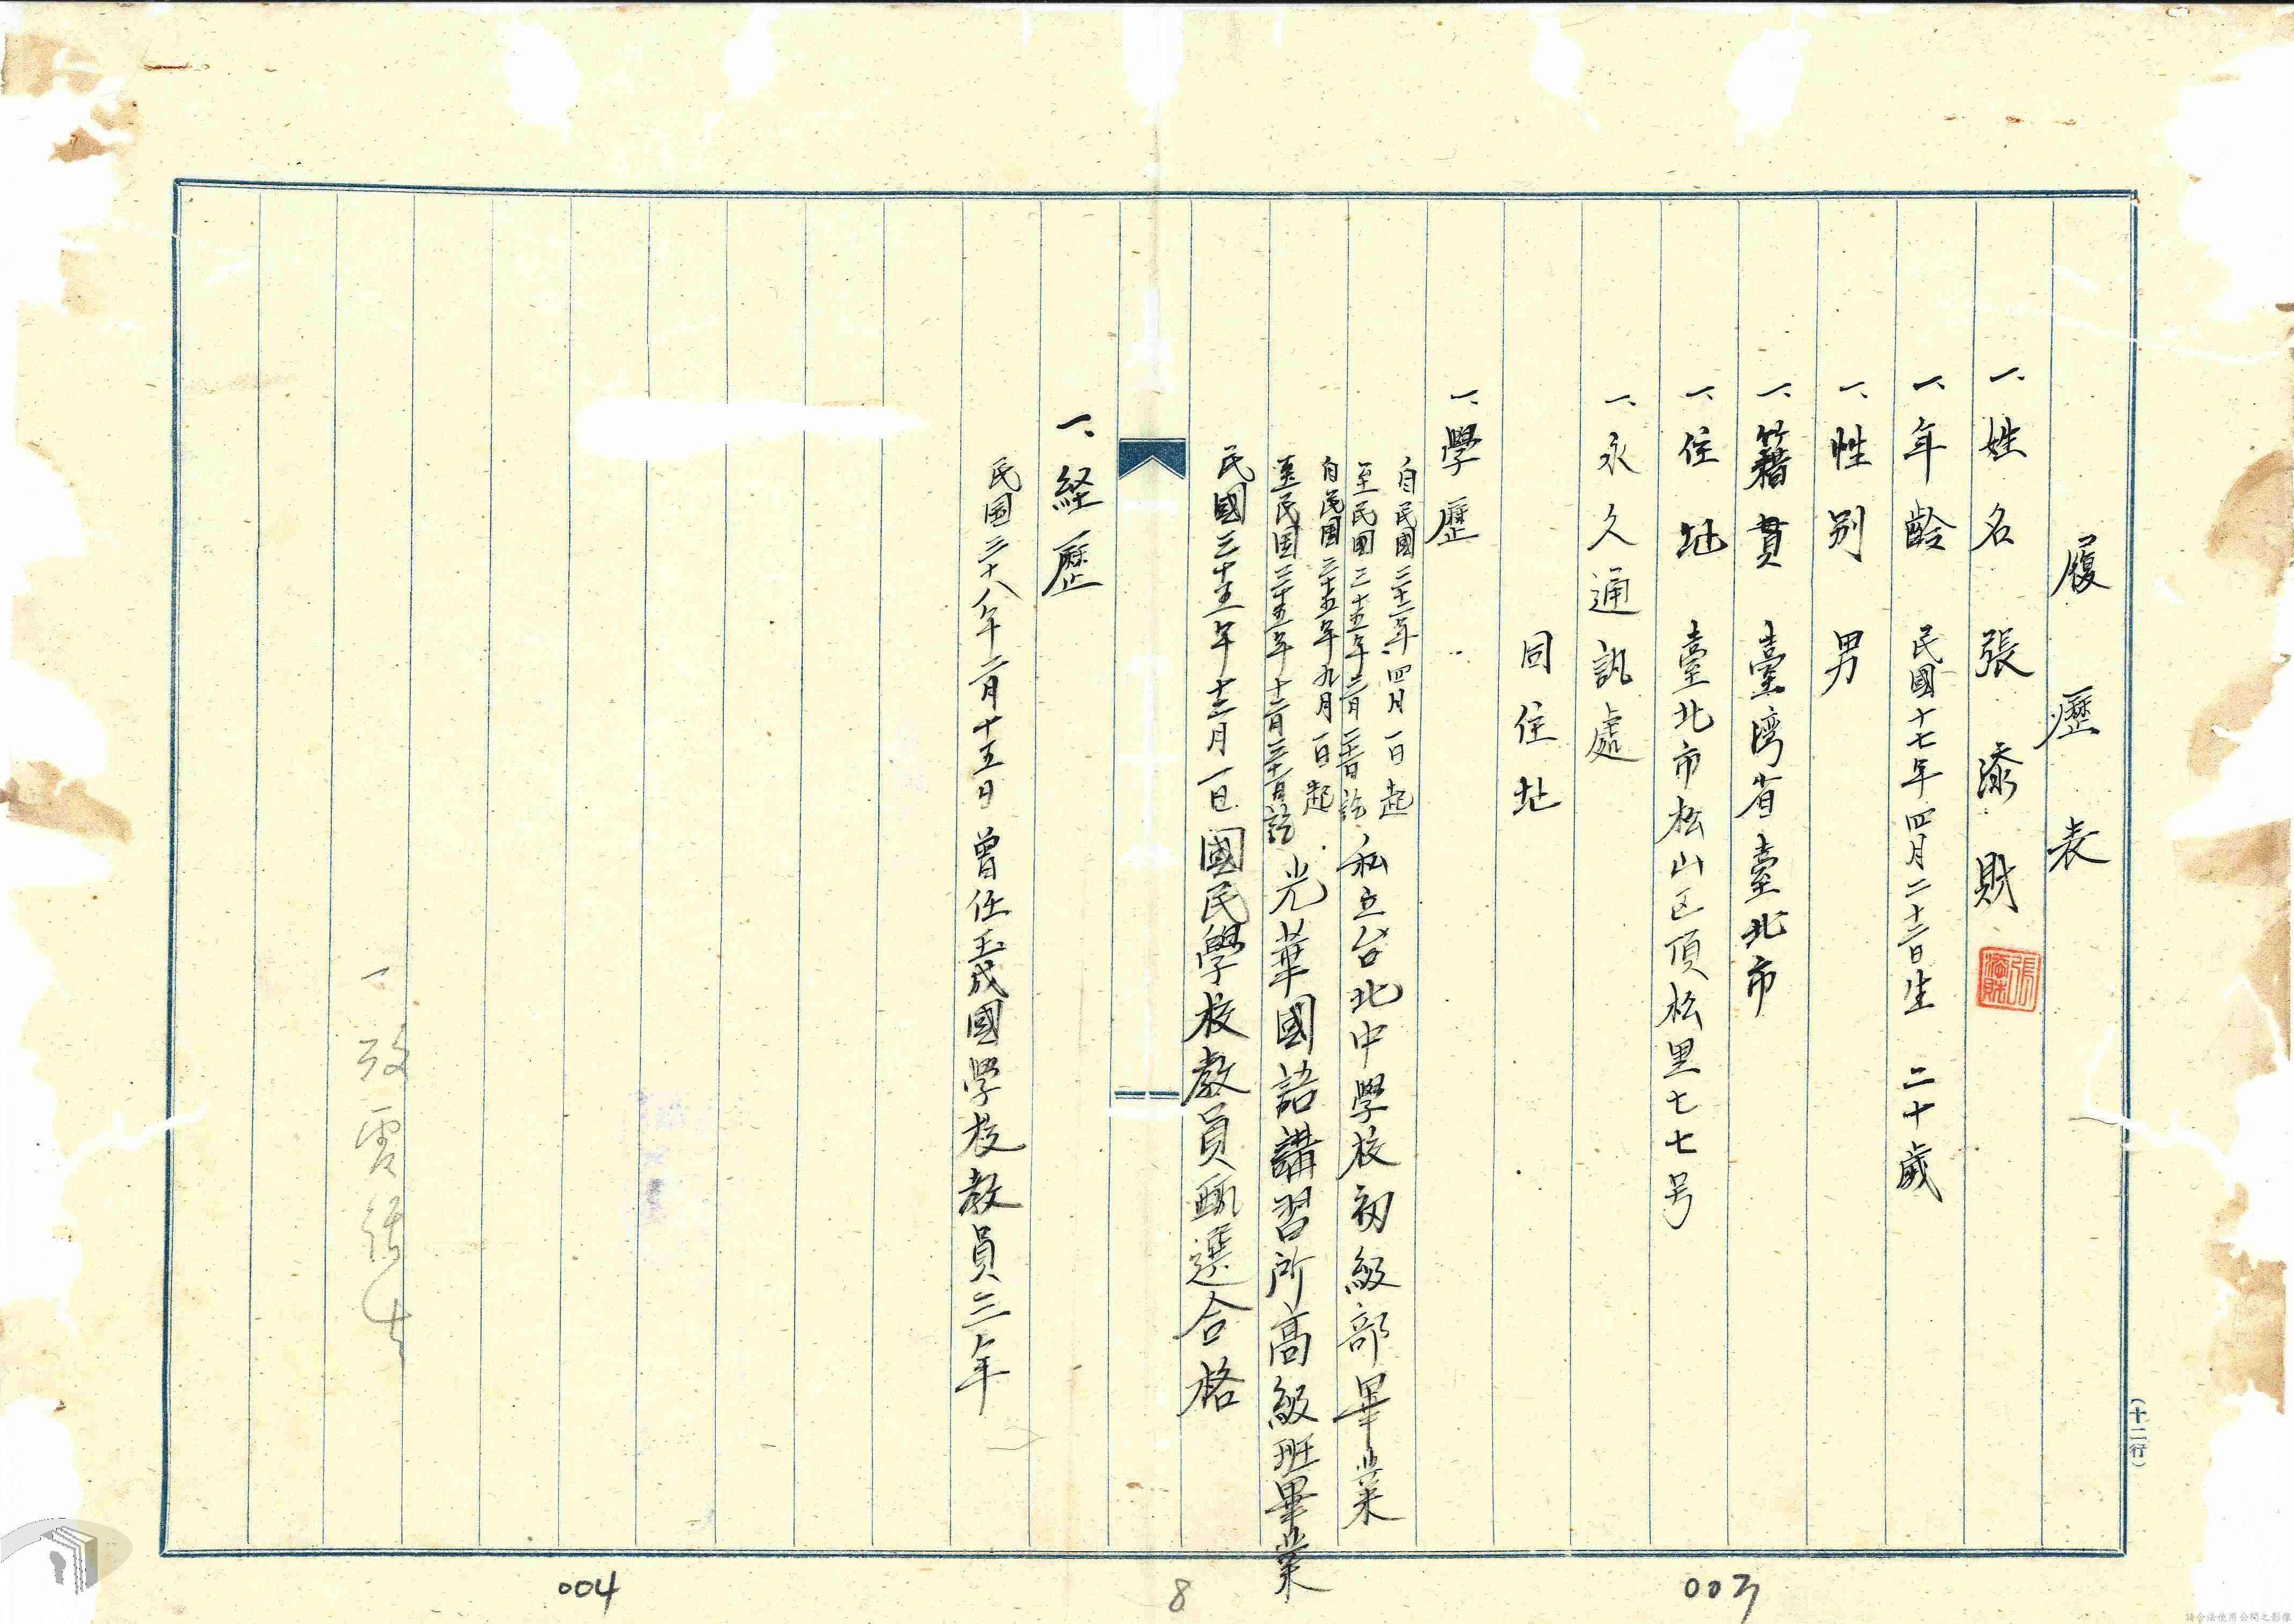 履歷表
一、姓名 張添財
張添財
一、年齡 民國十七年四月二十二日生 二十歲
一、性別 男
一、籍貫 臺湾省臺北市
一、住址 臺北市松山区頂松里七七号
一、永久通訊處
同住址
一、學歷
自民國三十二年四月一日起
至民國三十五年三月三十日訖 私立台北中學校初級部畢業
自民國三十五年九月一日起
至民国三十五年十二月三十一日訖 光華國語講習所高級班畢業
民國三十五年十二月一日國民學校教員甄選合格
一、経歷
民国三十八年二月十五日 曾任玉成國学校教員三年
(十二行)
003
8
004
請合法使用公開之影像